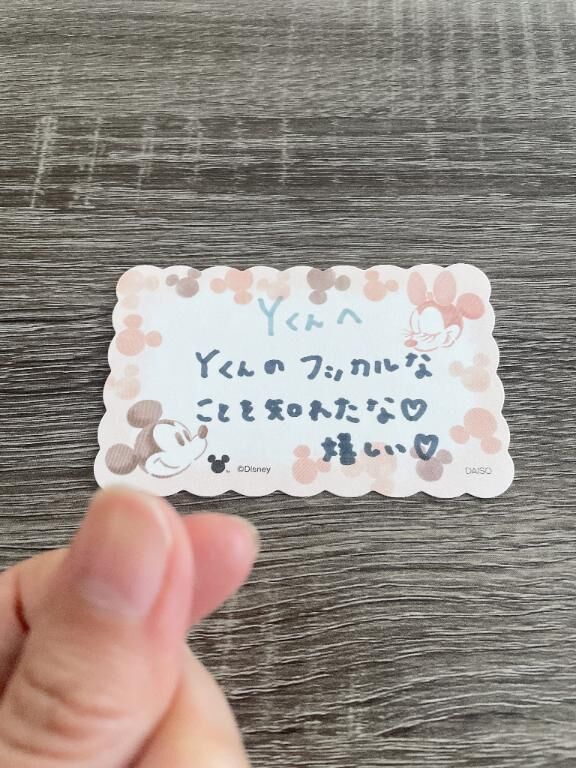 Yくんへ
Yくんの フッカルな
ことを知れたな♡
嬉しい♡
™ ©Disney
DAISO